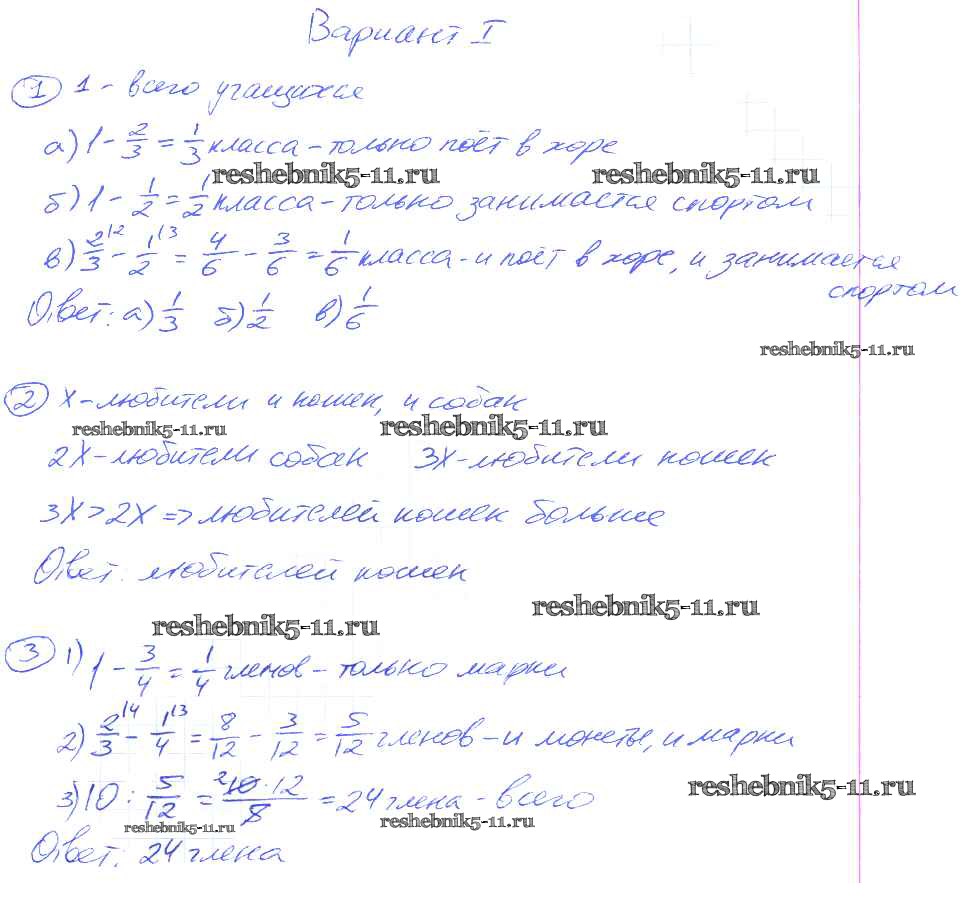 Вариант I
1 1 - всего учащихся
а) 1 - 2/3 = 1/3 класса - только поёт в хоре
resheбnik5-11.ru resheбnik5-11.ru
б) 1 - 1/2 = 1/2 класса - только занимается спортом
в) 2/3 \2 - 1/2 \3 = 4/6 - 3/6 = 1/6 класса - и поёт в хоре, и занимается
спортом
Ответ: а) 1/3 б) 1/2 в) 1/6
reshebnik5-11.ru
2 х - любители и кошек, и собак
reshebnik5-11.ru reshebnik5-11.ru
2х - любители собак 3х - любители кошек
3х > 2х => любителей кошек больше
Ответ: любителей кошек
reshebnik5-11.ru
reshebnik5-11.ru
3 1) 1 - 3/4 = 1/4 членов - только марки
2) 2/3 \4 - 1/4 \3 = 8/12 - 3/12 = 5/12 членов - и монеты, и марки
reshebnik5-11.ru
3) 10 : 5/12 = 2 10·12/5 = 24 члена - всего
reshebnik5-11.ru reshebnik5-11.ru
Ответ: 24 члена